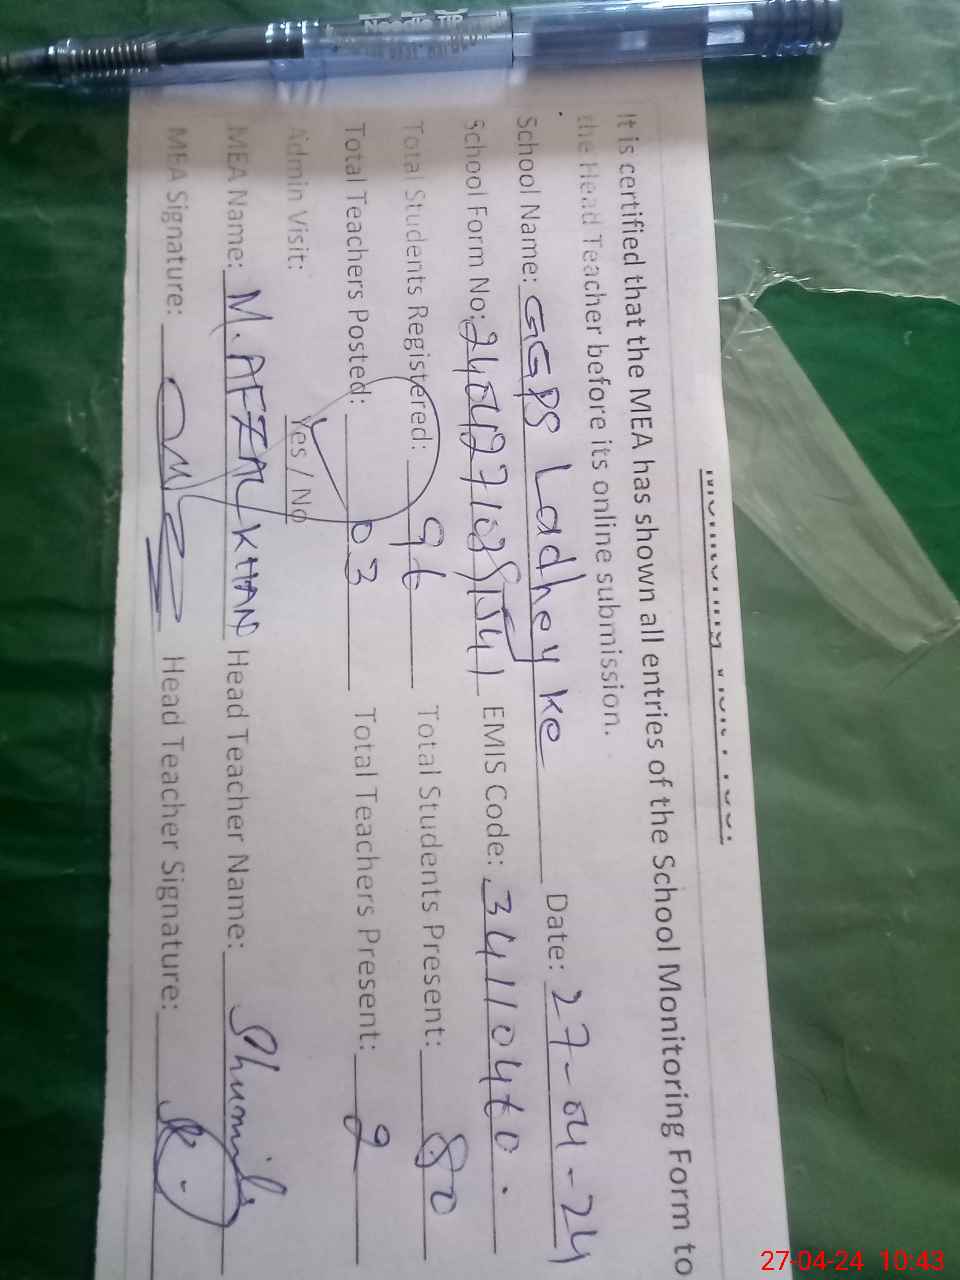 It is certified that the MEA has shown all entries of the School Monitoring Form to
the Head Teacher before its online submission.
School Name: GGPS Ladhey ke Date: 27-04-24
School Form No: EMIS Code: 34110460.
Total Students Registered: 96 Total Students Present: 80
Total Teachers Posted: 03 Total Teachers Present: 2
Admin Visit: Yes / No
MEA Name: M. AFZAL KHAN Head Teacher Name: Shumila
MEA Signature: Head Teacher Signature:
27-04-24 10:43